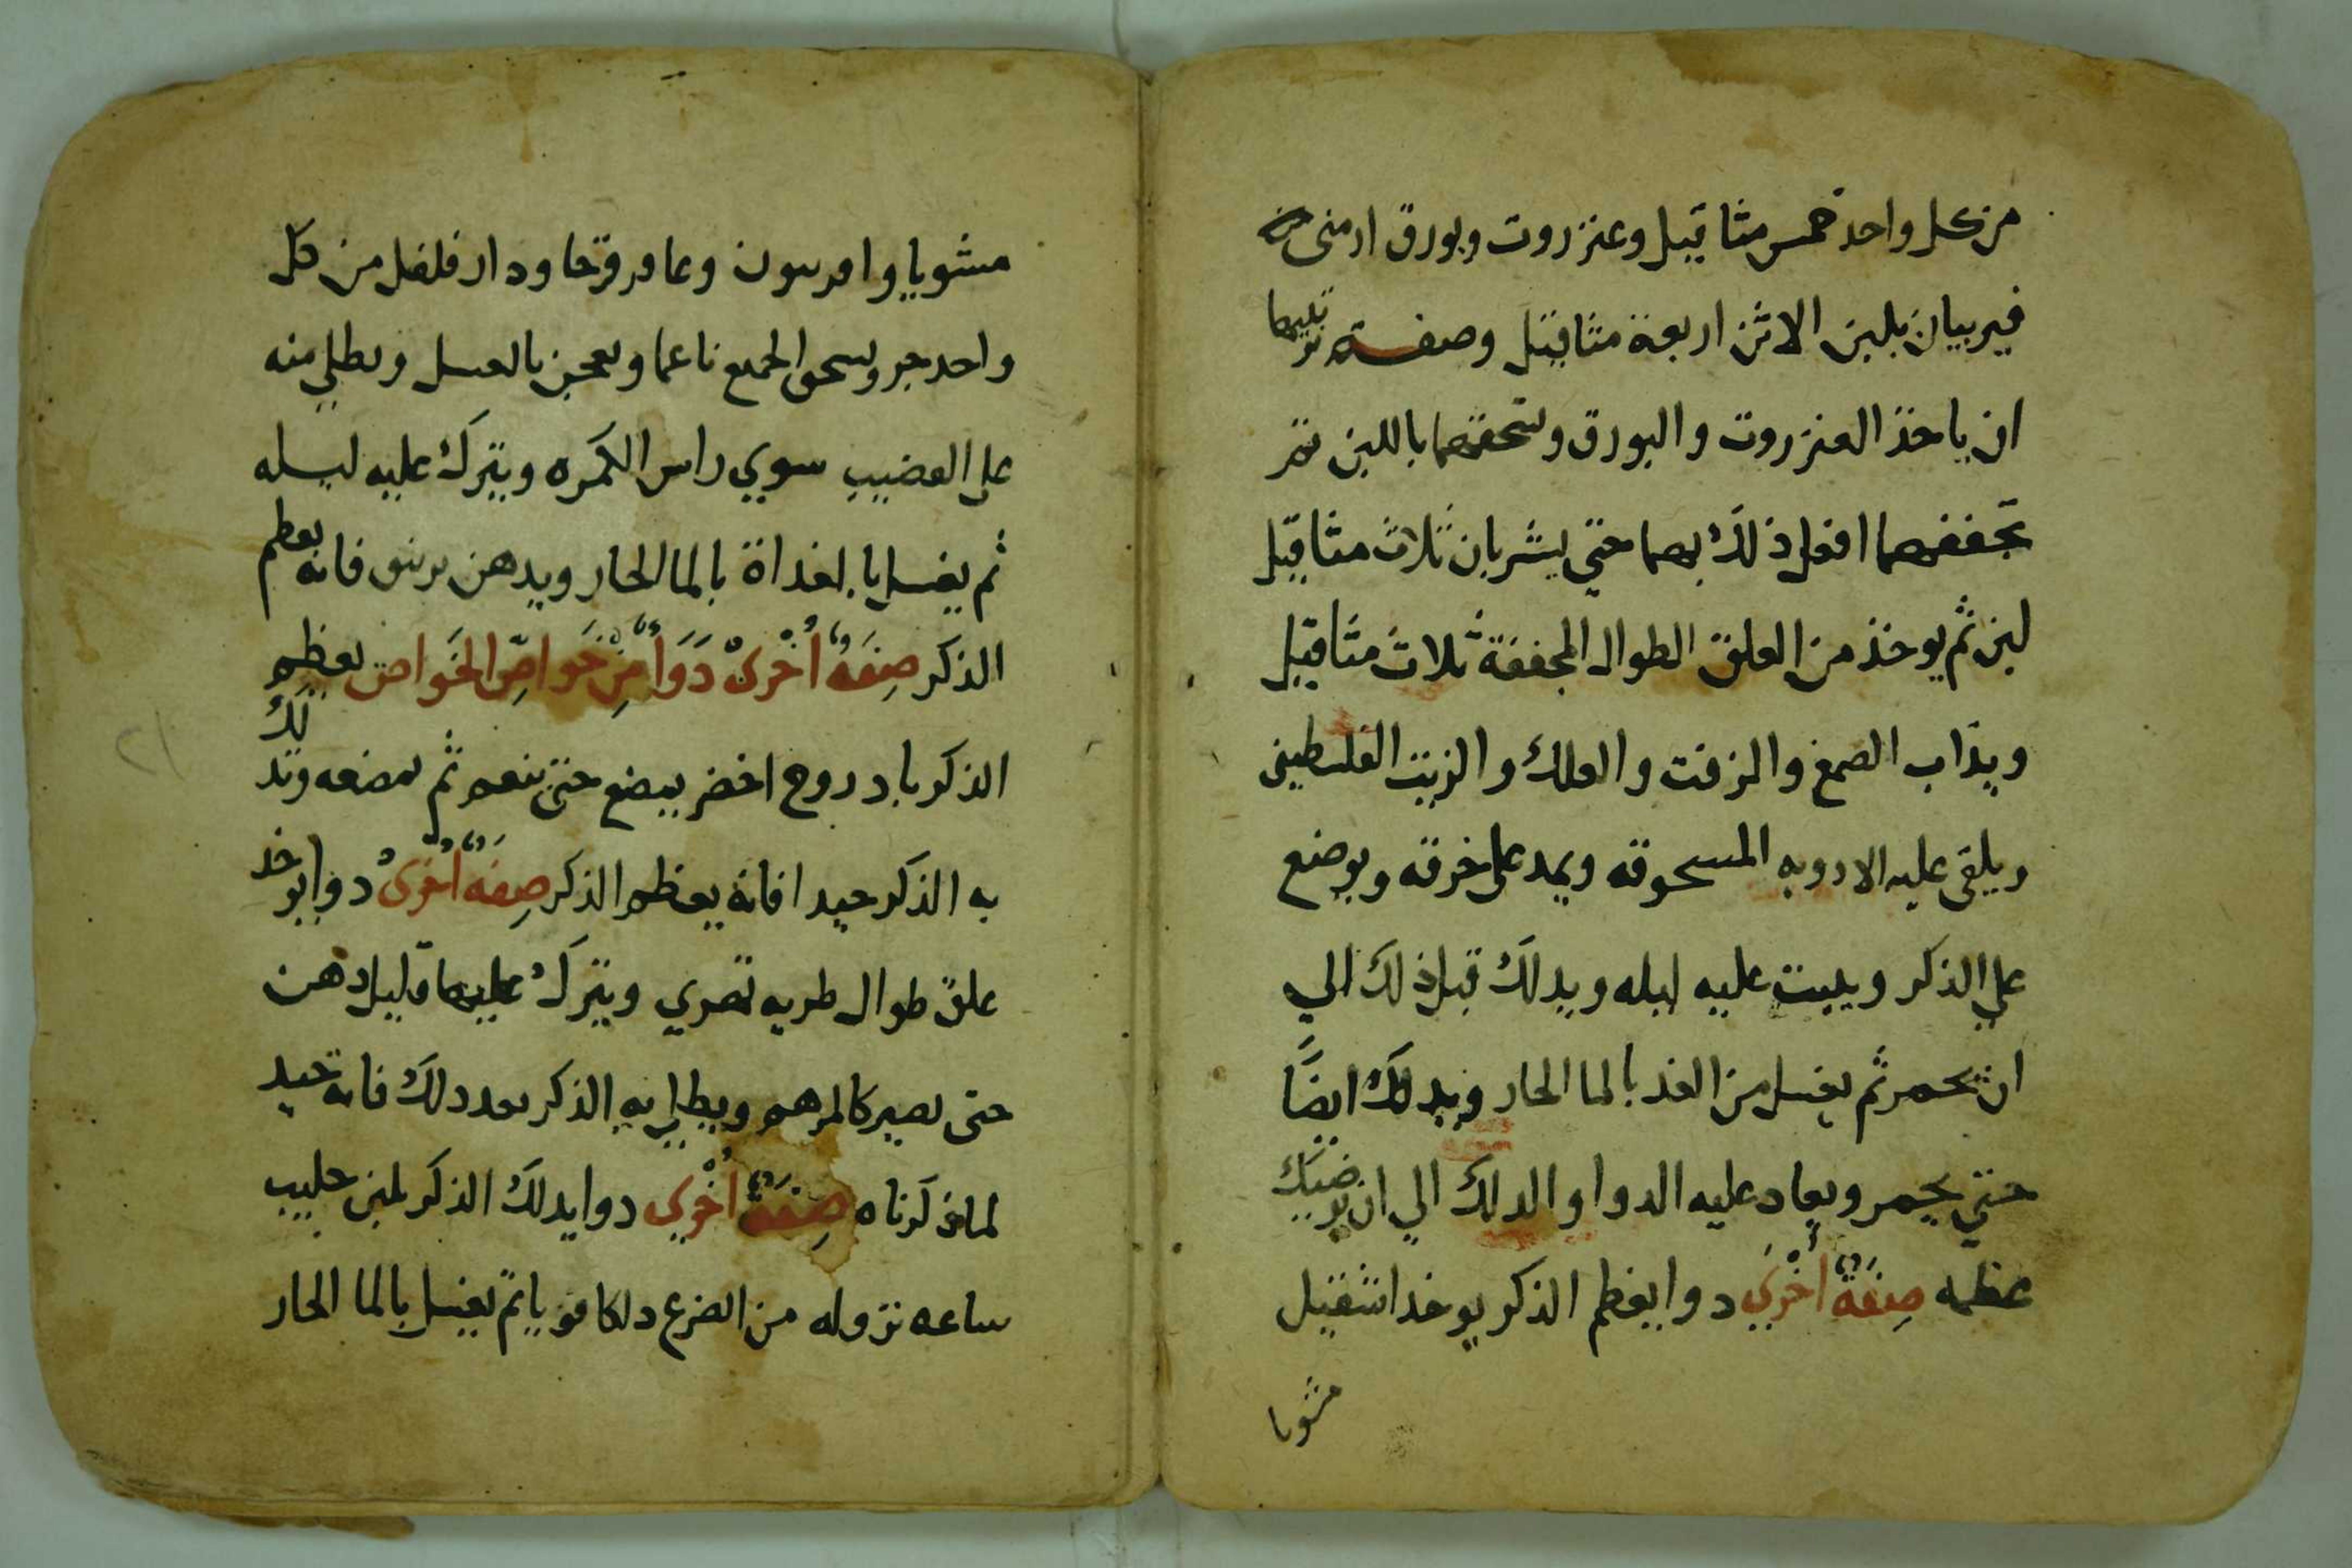 من كل واحد خمس مثاقيل وعنزروت وبورق ارمنى
فيربيان بلبن الاتن اربعة مثاقيل وصفة تربيتهما
ان ياخذ العنزروت والبورق وتسحقهما باللبن ثم
تجففهما افعل ذلك بهما حتي يشربان ثلاث مثاقيل
لبن ثم يوخذ من العلق الطوال المجففة ثلاث مثاقيل
ويذاب الصمغ والزفت والعلك والزيت الفلسطينى
ويلقى عليه الادويه المسحوقه ويمد على خرقه ويوضع
علي الذكر ويبيت عليه ليله ويدلك قبل ذلك الي
ان يحمر ثم يغسل من الغد بالما الحار ويدلك ايضًا
حتي يحمر ويعاد عليه الدوا والدلك الي ان يرضيك
عظمه صِفَةٌ أُخْرَي دوا يعظم الذكر يوخذ اشقيل
مشويا
مشويا وا وعاقرقرحا ودارفلفل من كل
واحد جزو يسحق الجميع ناعما ويعجن بالعسل ويطلي منه
علي القضيب سوي راس الكمره ويترك عليه ليله
ثم يغسل بالغداة بالما الحار ويدهن بزيبق فانه يعظم
الذكر صِفَةٌ أُخْرَىْ دَوَاءٌ مِنْ خَواصِّ الخَواص يعظم
الذكر بادروج اخضر يمضع حتى ينعم ثم تمضغه وتدلك
به الذكر جيدا فانه يعظم الذكر صِفَةٌ أُخْرَىْ دوا يوخذ
علق طوال طريه تهري ويترك عليها قليل دهن
حتى يصير كالمرهم ويطلي به الذكر بعد دلك فانه جيد
لما ذكرناه صِفَةٌ أُخْرَي دوا يدلك الذكر بلبن حليب
ساعه نزوله من الضرع دلكا قويا ثم يغسل بالما الحار
٢١